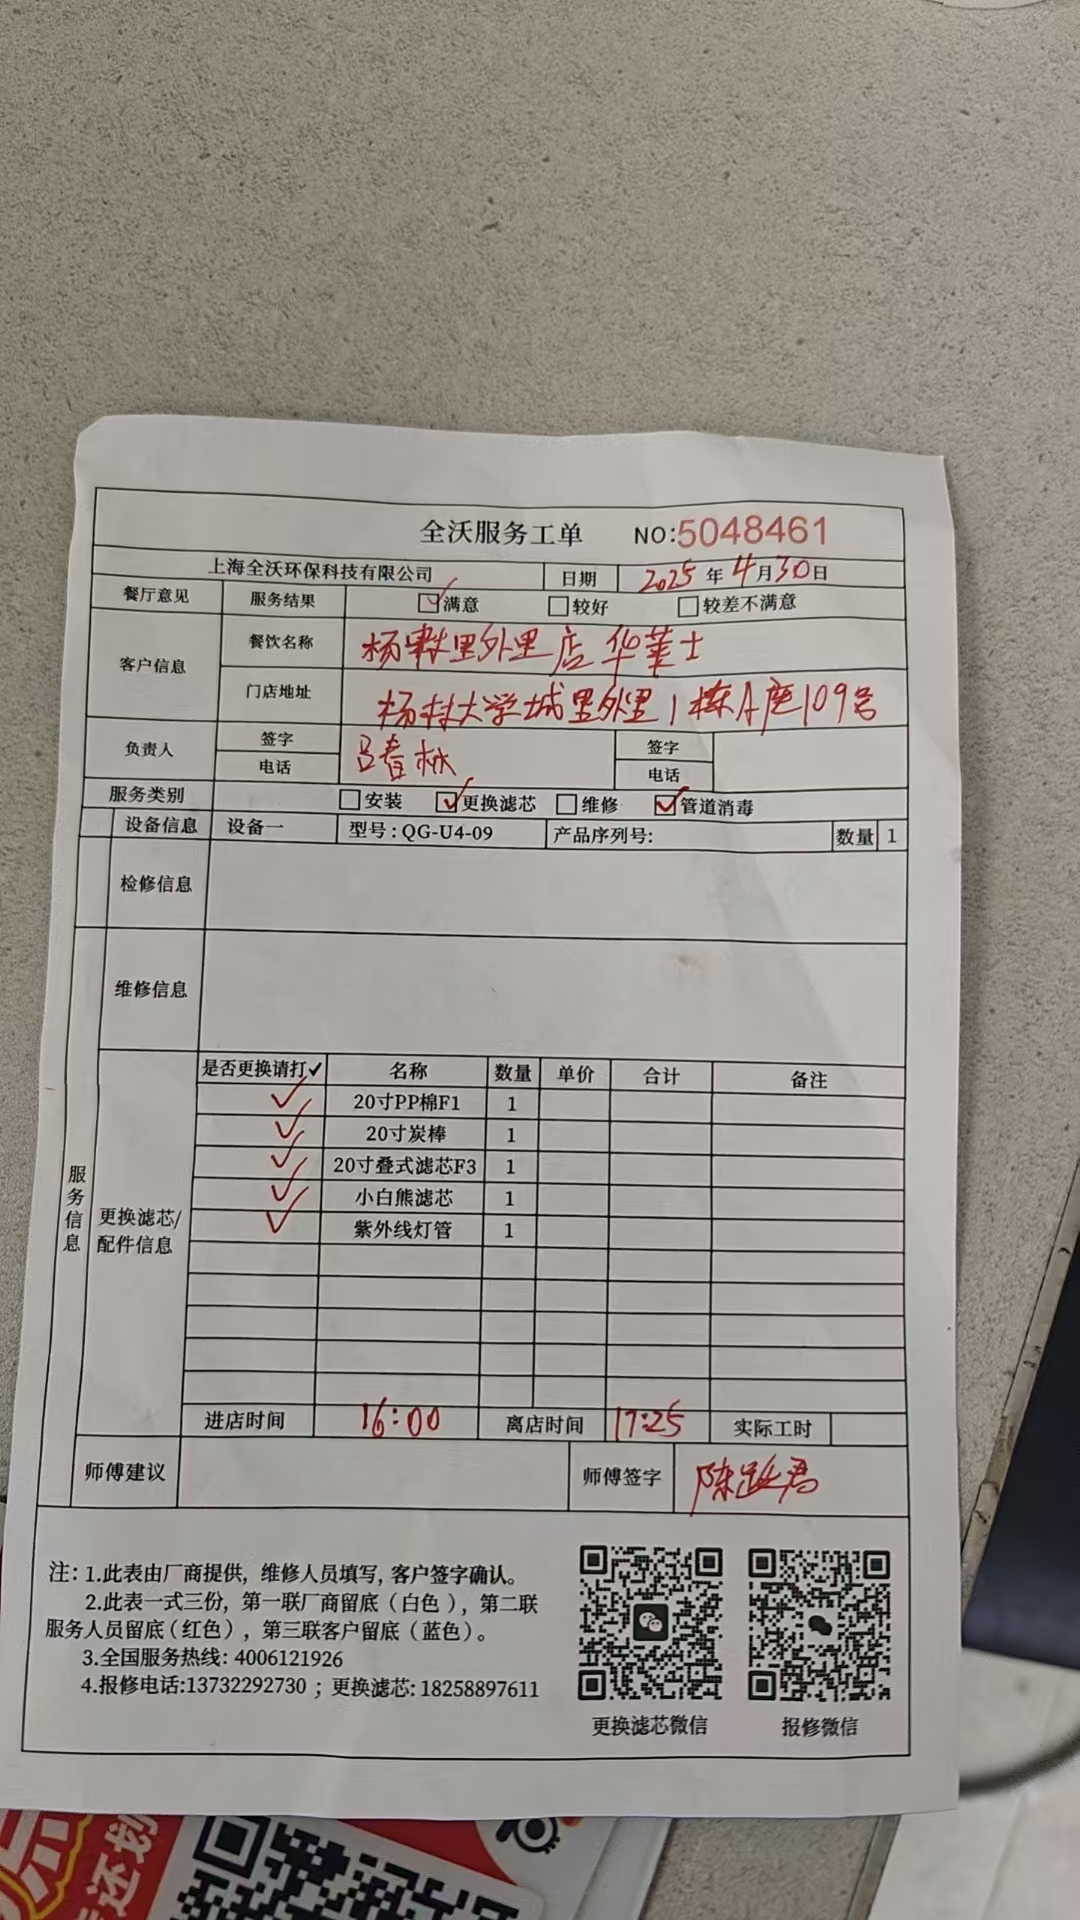 全沃服务工单 NO:5048461
上海全沃环保科技有限公司 日期 2025年4月30日
餐厅意见 服务结果 满意 较好 较差不满意
客户信息 餐饮名称 杨村里外里店 华莱士
门店地址 杨村大学城里外里1栋A座109号
负责人 签字 吕春林 签字
电话 电话
服务类别 安装 ✓更换滤芯 维修 ✓管道消毒
设备信息 设备一 型号:QG-U4-09 产品序列号: 数量 1
检修信息
维修信息
服务信息
更换滤芯/配件信息
是否更换请打✓ 名称 数量 单价 合计 备注
✓ 20寸PP棉F1 1
✓ 20寸炭棒 1
✓ 20寸叠式滤芯F3 1
✓ 小白熊滤芯 1
✓ 紫外线灯管 1
进店时间 16:00 离店时间 17:25 实际工时
师傅建议 师傅签字 陈
注: 1.此表由厂商提供, 维修人员填写, 客户签字确认。
2.此表一式三份, 第一联厂商留底(白色), 第二联
服务人员留底(红色), 第三联客户留底(蓝色)。
3.全国服务热线: 4006121926
4.报修电话:13732292730 ; 更换滤芯: 18258897611
更换滤芯微信 报修微信
还划